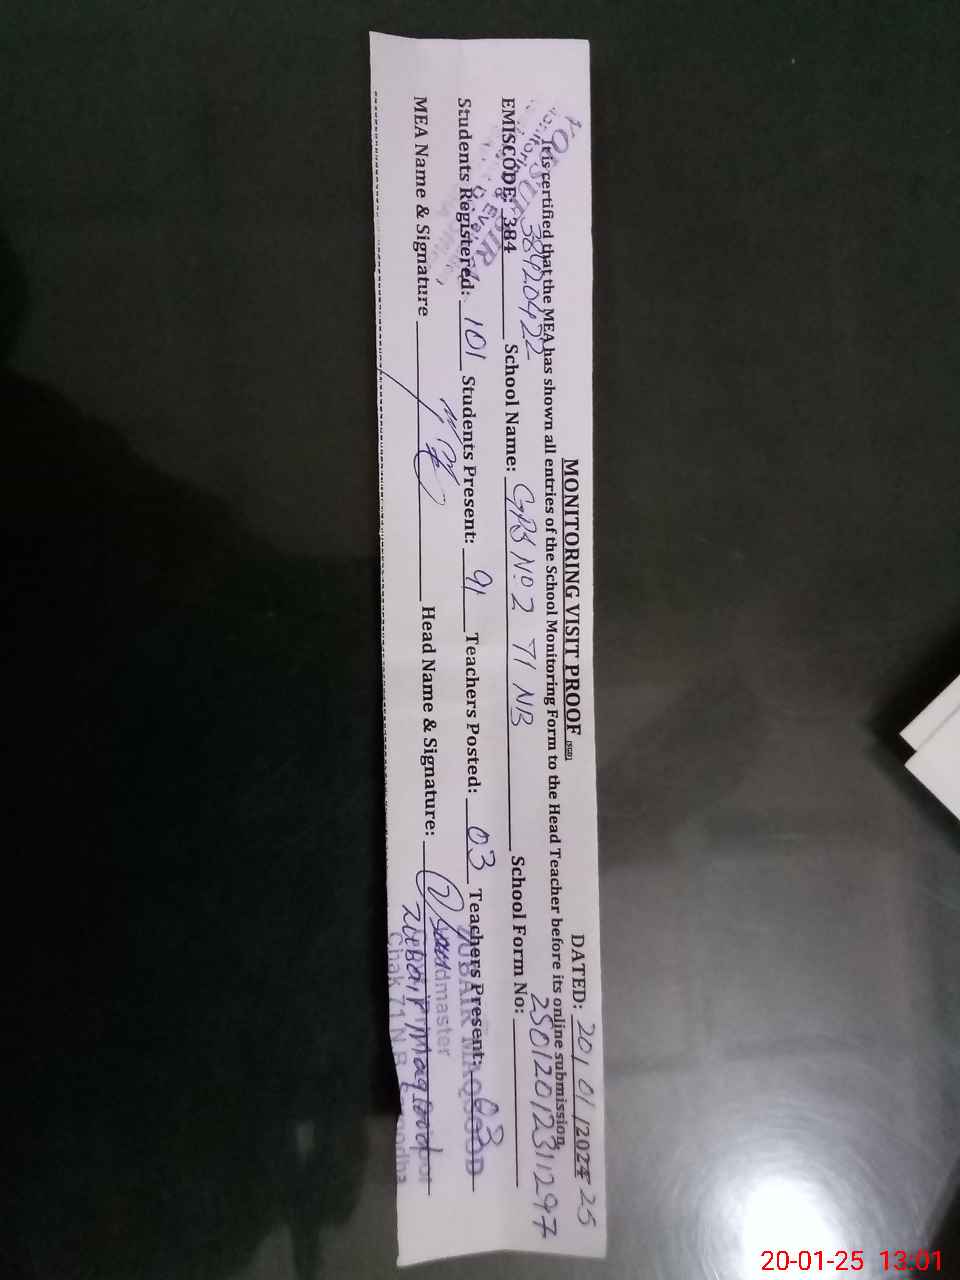 MONITORING VISIT PROOF (SGD)
DATED: 20/01/2024 25
It is certified that the MEA has shown all entries of the School Monitoring Form to the Head Teacher before its online submission.
EMISCODE: 384 38420422 School Name: GPS No 2 71 NB School Form No: 250120123111297
Students Registered: 101 Students Present: 91 Teachers Posted: 03 Teachers Present: 03
MEA Name & Signature Head Name & Signature:
ZUBAIR MAQSOOD
Headmaster
Zubair Maqsood
Chak 71 N.B
20-01-25 13:01